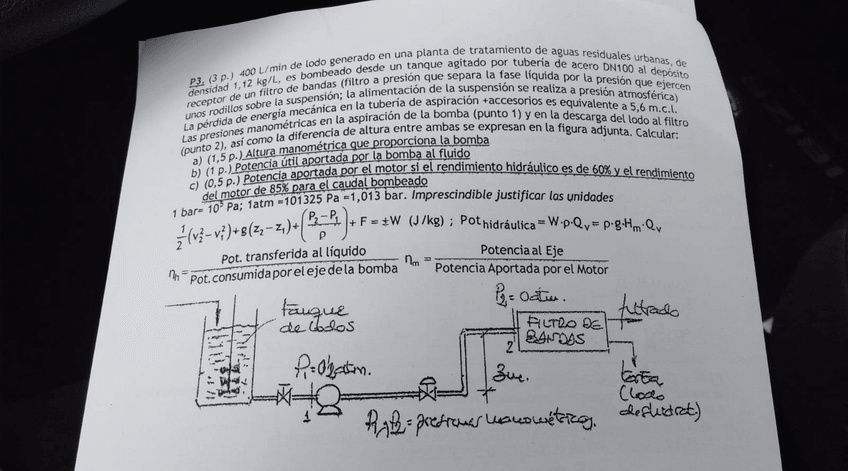 P3. (3 p.) 400 L/min de lodo generado en una planta de tratamiento de aguas residuales urbanas, de
densidad 1,12 kg/L, es bombeado desde un tanque agitado por tubería de acero DN100 al depósito
receptor de un filtro de bandas (filtro a presión que separa la fase líquida por la presión que ejercen
unos rodillos sobre la suspensión; la alimentación de la suspensión se realiza a presión atmosférica)
La pérdida de energía mecánica en la tubería de aspiración +accesorios es equivalente a 5,6 m.c.l.
Las presiones manométricas en la aspiración de la bomba (punto 1) y en la descarga del lodo al filtro
(punto 2), así como la diferencia de altura entre ambas se expresan en la figura adjunta. Calcular:
a) (1,5 p.) Altura manométrica que proporciona la bomba
b) (1 p.) Potencia útil aportada por la bomba al fluido
c) (0,5 p.) Potencia aportada por el motor si el rendimiento hidráulico es de 60% y el rendimiento
del motor de 85% para el caudal bombeado
1 bar= 10⁵ Pa; 1atm =101325 Pa =1,013 bar. Imprescindible justificar las unidades
½(v₂²−v₁²)+g(z₂−z₁)+((P₂−P₁)/ρ)+F=±W (J/kg) ; Pot hidráulica=W·ρ·Qᵥ=ρ·g·Hₘ·Qᵥ
ηₕ= Pot. transferida al líquido / Pot. consumida por el eje de la bomba ηₘ= Potencia al Eje / Potencia Aportada por el Motor
P₂=0atm.
tanque
de lodos
filtrado
FILTRO DE
BANDAS
2
P₁=0'2atm.
3m.
torta
(lodo
deshidrat.)
1
P₁ y P₂ = presiones manométricas.